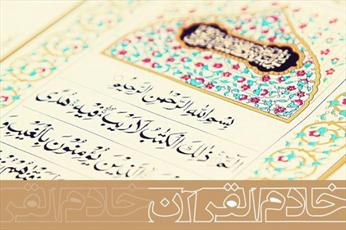 بِسْمِ اللهِ الرَّحْمٰنِ الرَّحِيمِ
الم ذٰلِكَ الْكِتٰبُ لَا رَيْبَ فِيهِ هُدًى
الَّذِينَ يُؤْمِنُونَ بِالْغَيْبِ وَ
خادم القرآن خادم القر